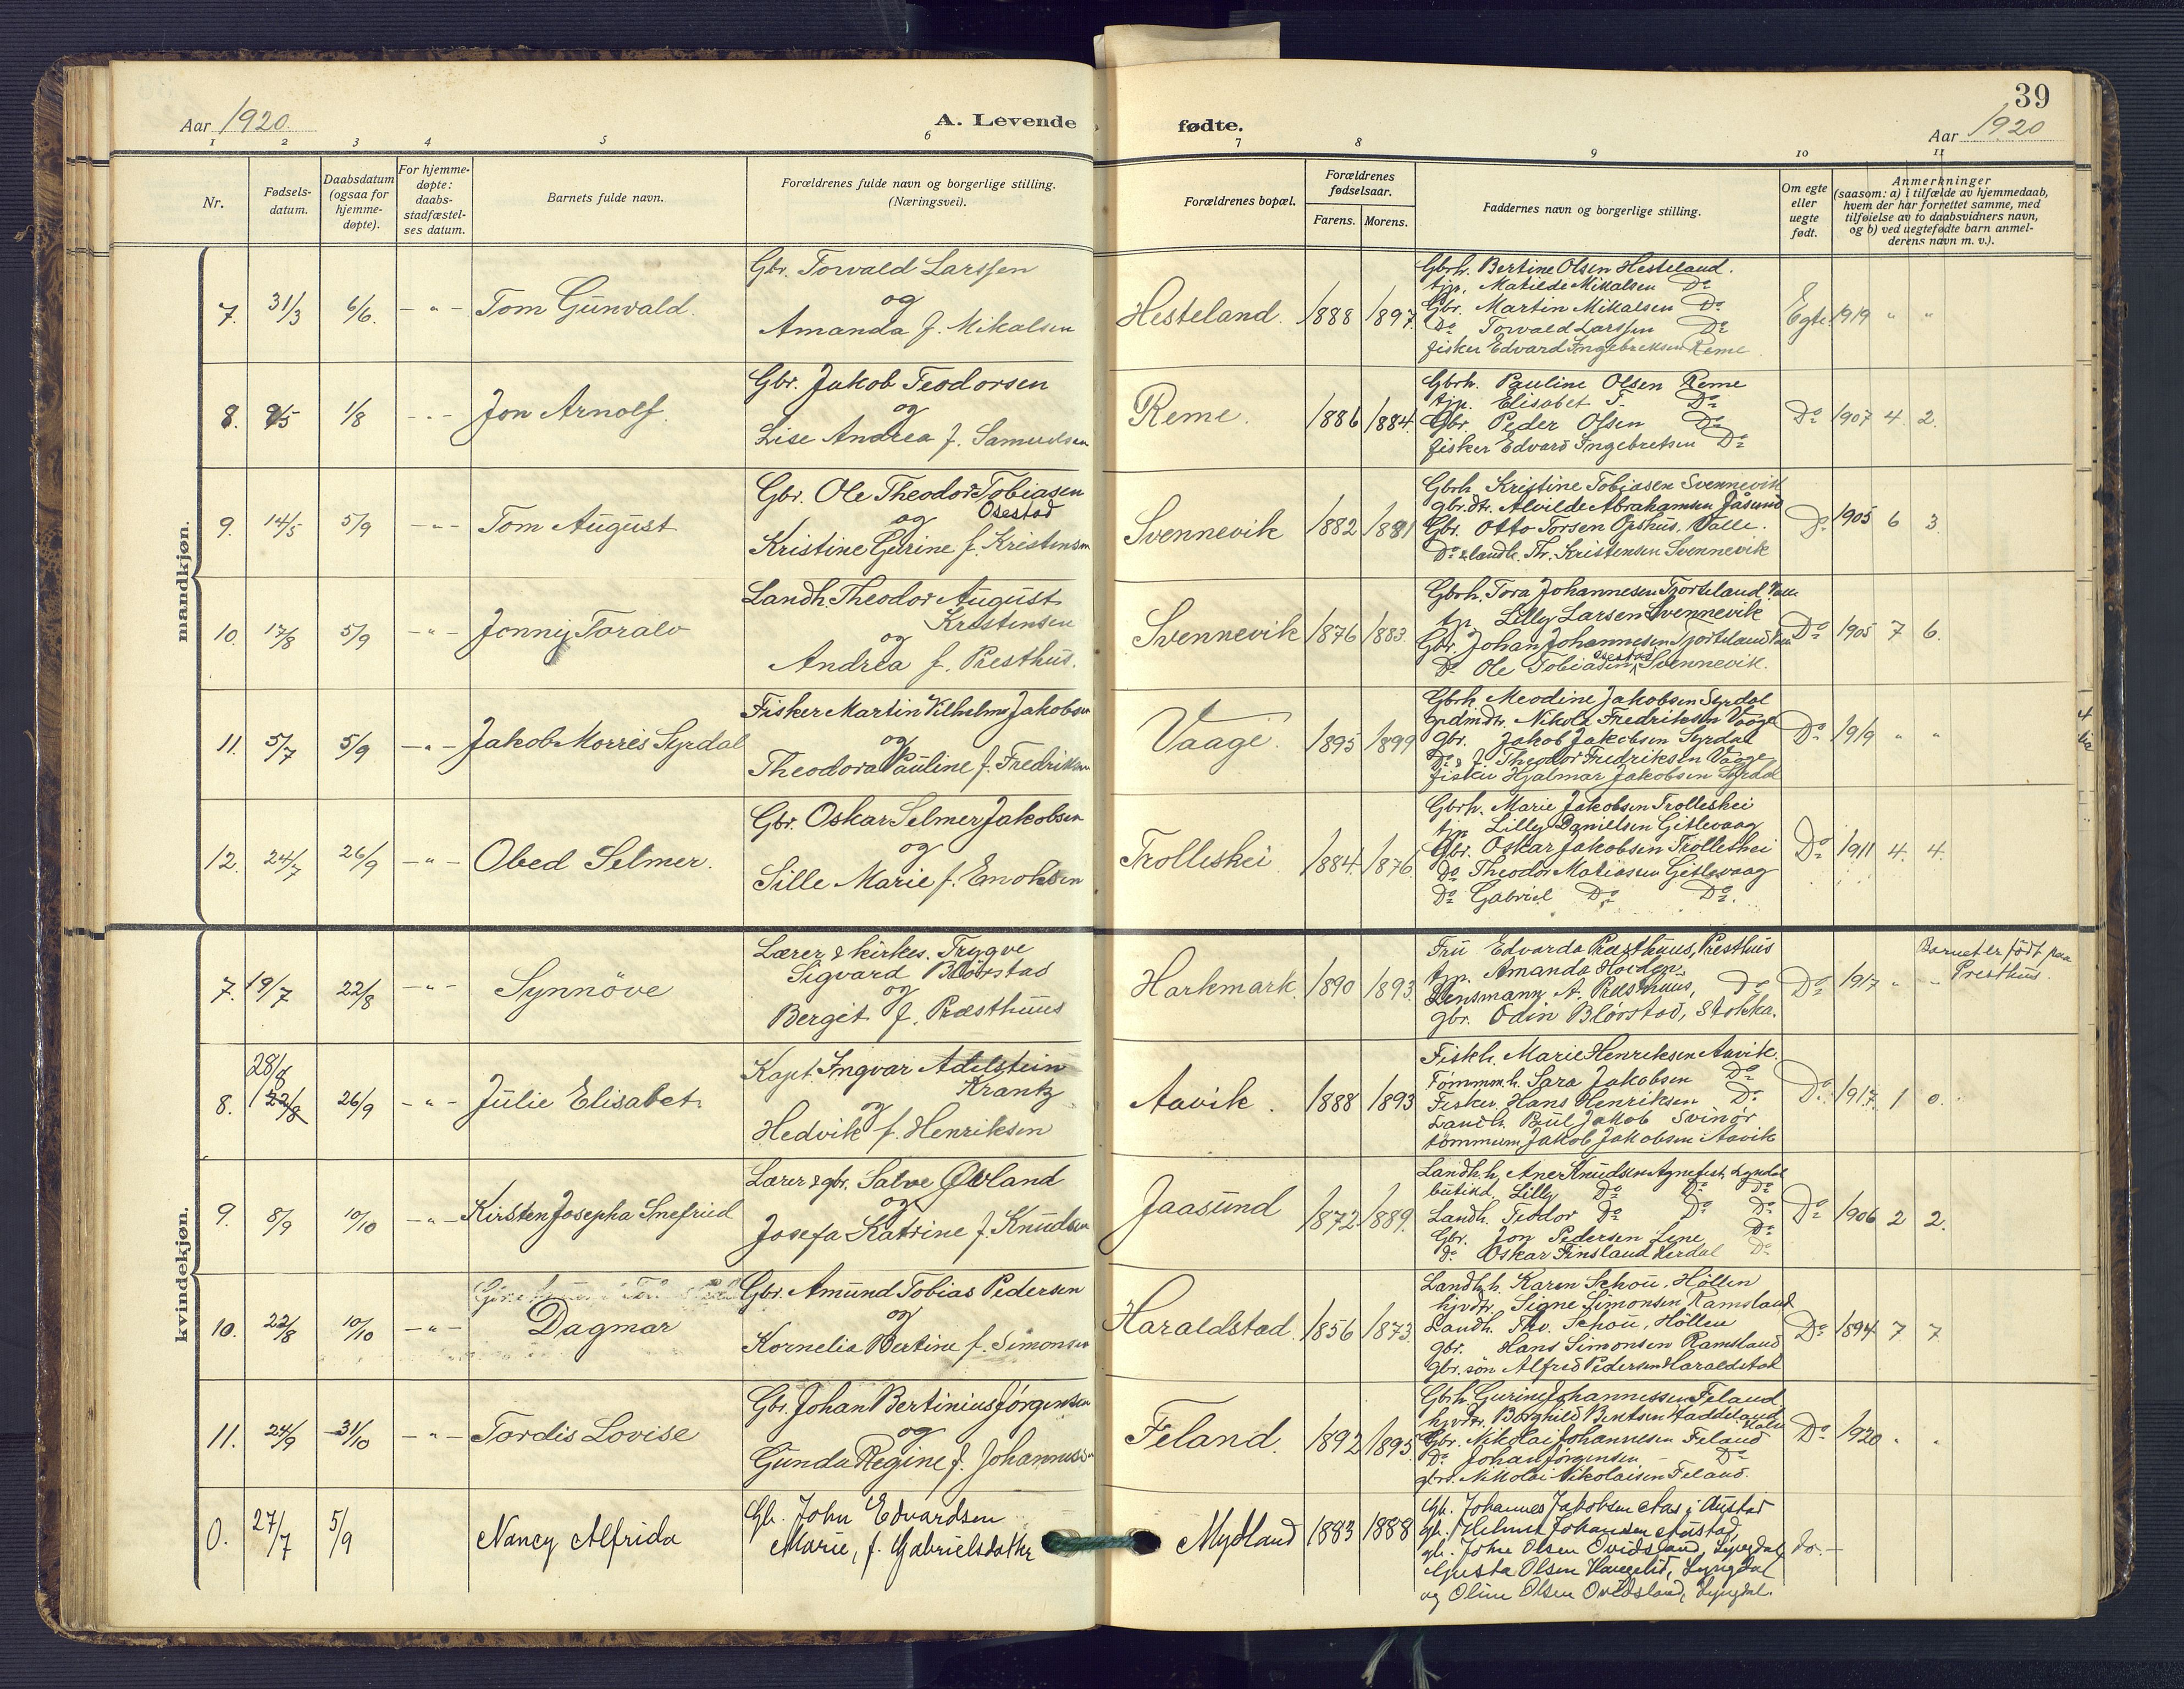 39
Aar 1920.
A. Levende fødte.
Aar 1920
1 2 3 4 5 6 7 8 9 10 11
Nr.
Fødsels-
datum.
Daabsdatum
(ogsaa for
hjemme-
døpte).
For hjemme-
døpte:
daabs-
stadfæstel-
ses datum.
Barnets fulde navn.
Forældrenes fulde navn og borgerlige stilling.
(Næringsvei).
Forældrenes bopæl.
Forældrenes
fødselsaar.
Farens. Morens.
Faddernes navn og borgerlige stilling.
Om egte
eller
uegte
født.
Anmerkninger
(saasom: a) i tilfælde av hjemmedaab,
hvem der har forrettet samme, med
tilføielse av to daabsvidners navn,
og b) ved uegtefødte barn anmel-
derens navn m. v.).
mandkjøn.
7. 31/3 6/6. - " - Tom Gunvald.
Gbr. Torvald Larssen
og
Amanda f. Mikalsen
Hesteland. 1888 1897.
Gbrh. Bertine Olsen Hesteland.
tjp. Matilde Mikalsen Do
Gbr. Martin Mikalsen Do
Do Torvald Larssen Do
fisker Edvard Ingebretsen Reme
Egte 1919 " "
8. 9/5 1/8 - " - Jon Arnolf.
Gbr. Jakob Teodorsen
og
Lise Andrea f. Samuelsen
Reme. 1886 1884.
Gbrh. Pauline Olsen Reme
tjp. Elisabet T. Do
Gbr. Peder Olsen Do
fisker Edvard Ingebretsen Do
Do 1907 4 2.
9. 14/5 5/9 - " - Tom August
Gbr. Ole Theodor Tobiasen
og Osestad
Kristine Gurine f. Kristensen
Svennevik 1882 1881
Gbrh Kristine Tobiasen Svennevik
gbr.dt. Alvilde Abrahamsen Jåsund
Gbr. Otto Torsen Opshus. Valle.
Do & landh. Th. Kristensen Svennevik
Do 1905 6 3
10. 17/8 5/9 - " - Jonny Toralv
Landh. Theodor August
Kristensen
og
Andrea f. Presthus.
Svennevik 1876 1883
Gbrh. Tora Johannesen Valle
tjp. Lilly Larsen Svennevik
Gbr. Johan Johannesen
Do Ole Tobiasen Osestad Svennevik.
Do 1905 7 6.
11. 5/7 5/9 - " - Jakob Morres Syrdal
Fisker Martin Vilhelm Jakobsen
og
Theodora Pauline f. Fredriksen
Vaage. 1895 1899
Gbrh. Meodine Jakobsen Syrdal
Nikola Fredriksen Vaage
gbr. Jakob Jakobsen Syrdal
Do & f. Theodor Fredriksen Vaage
fisker Hjalmar Jakobsen Syrdal
Do 1919 " "
12. 24/7 26/9 - " - Obed Selmer.
Gbr. Oskar Selmer Jakobsen
og
Sille Marie f. Enoksen
Trolleskei 1884. 1876.
Gbrh. Marie Jakobsen Trolleshei
tjp. Lilly Danielsen Gitlevaag
Gbr. Oskar Jakobsen Trolleshei
Do Theodor Matiasen Gitlevaag
Do Gabriel Do Do.
Do 1911 4. 4.
kvindekjøn.
7. 19/7 22/8 - " - Synnöve
Lærer & kirkes. Trygve
Sigvard Blörstad
og
Berget f. Præsthuus
Harkmark. 1890 1893.
Fru Edvarda Præsthuus, Presthus
tjp. Amanda
Lensmann A. Præsthuus, Do
gbr. Odin Blörstad, Stokka.
Do 1917 " "
Barnet er født paa
Presthus.
8. 28/8 22/8 26/9 - " - Julie Elisabet
Kapt. Ingvar Adelstein
Krantz
og
Hedvik f. Henriksen
Aavik. 1888 1893
Fiskh. Marie Henriksen Aavik.
Tömmmh. Sara Jakobsen Do
Fisker Hans Henriksen Do
Landh. Paul Jakob Svinör
tömmerm. Jakob Jakobsen Aavik
Do. 1917. 1 0.
9. 8/9 10/10 - " - Kirsten Josepha Snefried
Lærer & gbr. Salve Øvland
og
Josefa Katrine f. Knudsen
Jaasund 1872 1889.
Landh.h. Ane Knudsen Agnefest, Lyngdal
butikd. Lilly Do Do Do
Landh. Teodor Do Do Do
Gbr. Jon Pedersen Lene Do
Do Oskar Finsland Herdal Do
Do 1906 2 2.
10. 22/8 10/10 - " - Dagmar
Gbr. Amund Tobias Pedersen
og
Kornelia Bertine f. Simonsen
Haraldstad. 1856 1873.
Landh.h. Karen Schou, Höllen
hjvdtr. Signe Simonsen Ramsland
Landh. Thv. Schou, Höllen
gbr. Hans Simonsen Ramsland
Gbr. sön Alfred Pedersen Haraldstad
Do 1894 7 7.
11. 24/9 31/10 - " - Tordis Lovise
Gbr. Johan Bertinius Jörgensen
og
Gunda Regine f. Johannessen
Feland. 1892 1895
Gbrh. Gurine Johannessen Feland
hjvdtr. Borghild Bentsen Haddeland
Gbr. Nikolai Johannesen Feland
Do Johan Jörgensen Do
gbrs. Nikolai Nikolaisen Feland.
Do 1920 " "
0. 27/7 5/9 Nancy Alfrida
Gb. John Edvardsen
Marie, f. Gabrielsdatter
Mydland 1883 1888
Gb. Johannes Jakobsen Aas i Austad
gb. Helmer Johansen Austad,
gb. John Olsen Ovidsland, Lyngdal
Gusta Olsen Lyngdal
og Oline Olsen Ovidsland, Lyngdal.
do. -